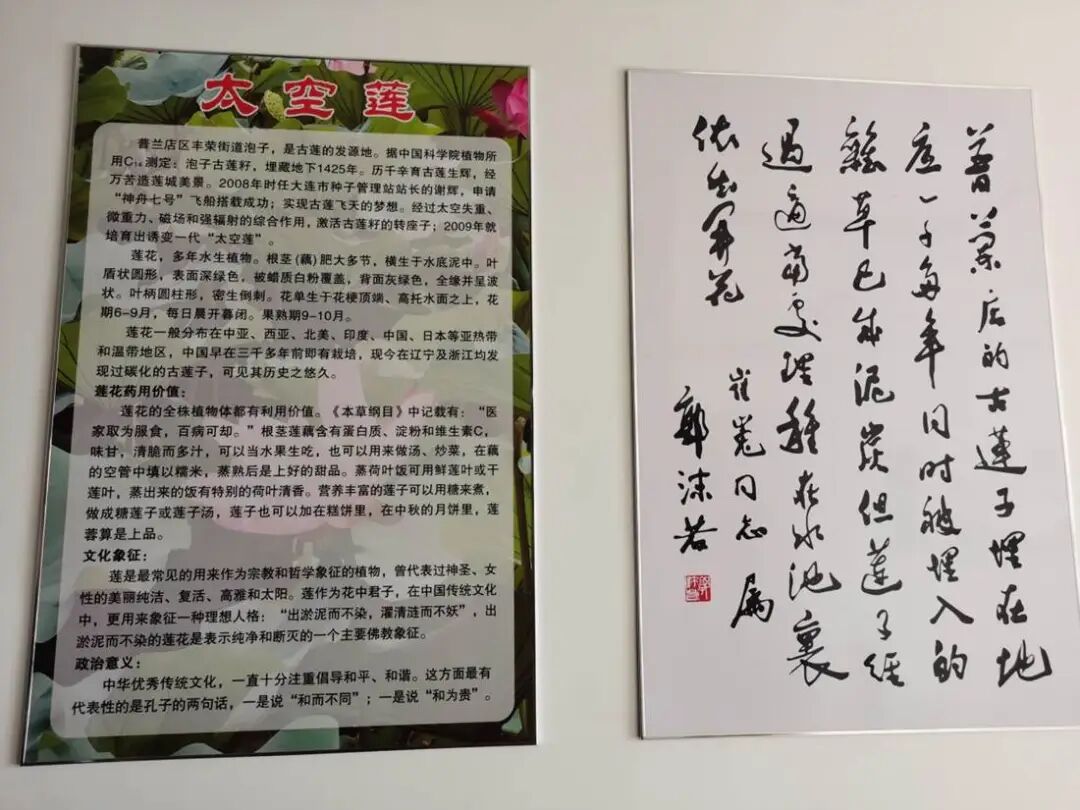 太空莲
普兰店区丰荣街道泡子，是古莲的发源地。据中国科学院植物所
用C₁₄测定：泡子古莲籽，埋藏地下1425年。历千辛育古莲生辉，经
万苦造莲城美景。2008年时任大连市种子管理站站长的谢辉，申请
“神舟七号”飞船搭载成功；实现古莲飞天的梦想。经过太空失重、
微重力、磁场和强辐射的综合作用，激活古莲籽的转座子；2009年就
培育出诱变一代“太空莲”。
莲花，多年水生植物。根茎(藕)肥大多节，横生于水底泥中。叶
盾状圆形，表面深绿色，被蜡质白粉覆盖，背面灰绿色，全缘并呈波
状。叶柄圆柱形，密生倒刺。花单生于花梗顶端、高托水面之上，花
期6-9月，每日晨开暮闭。果熟期9-10月。
莲花一般分布在中亚、西亚、北美、印度、中国、日本等亚热带
和温带地区，中国早在三千多年前即有栽培，现今在辽宁及浙江均发
现过碳化的古莲子，可见其历史之悠久。
莲花药用价值：
莲花的全株植物体都有利用价值。《本草纲目》中记载有：“医
家取为服食，百病可却。”根茎莲藕含有蛋白质、淀粉和维生素C，
味甘，清脆而多汁，可以当水果生吃，也可以用来做汤、炒菜，在藕
的空管中填以糯米，蒸熟后是上好的甜品。蒸荷叶饭可用鲜莲叶或干
莲叶，蒸出来的饭有特别的荷叶清香。营养丰富的莲子可以用糖来煮，
做成糖莲子或莲子汤，莲子也可以加在糕饼里，在中秋的月饼里，莲
蓉算是上品。
文化象征：
莲是最常见的用来作为宗教和哲学象征的植物，曾代表过神圣、女
性的美丽纯洁、复活、高雅和太阳。莲作为花中君子，在中国传统文化
中，更用来象征一种理想人格：“出淤泥而不染，濯清涟而不妖”，出
淤泥而不染的莲花是表示纯净和断灭的一个主要佛教象征。
政治意义：
中华优秀传统文化，一直十分注重倡导和平、和谐。这方面最有
代表性的是孔子的两句话，一是说“和而不同”；一是说“和为贵”。
普蘭店的古蓮子埋在地
底一千多年同时被埋入的
雜草已成泥炭但蓮子经
過適當处理種在水池裏
依然開花
崔嵬同志属
郭沫若